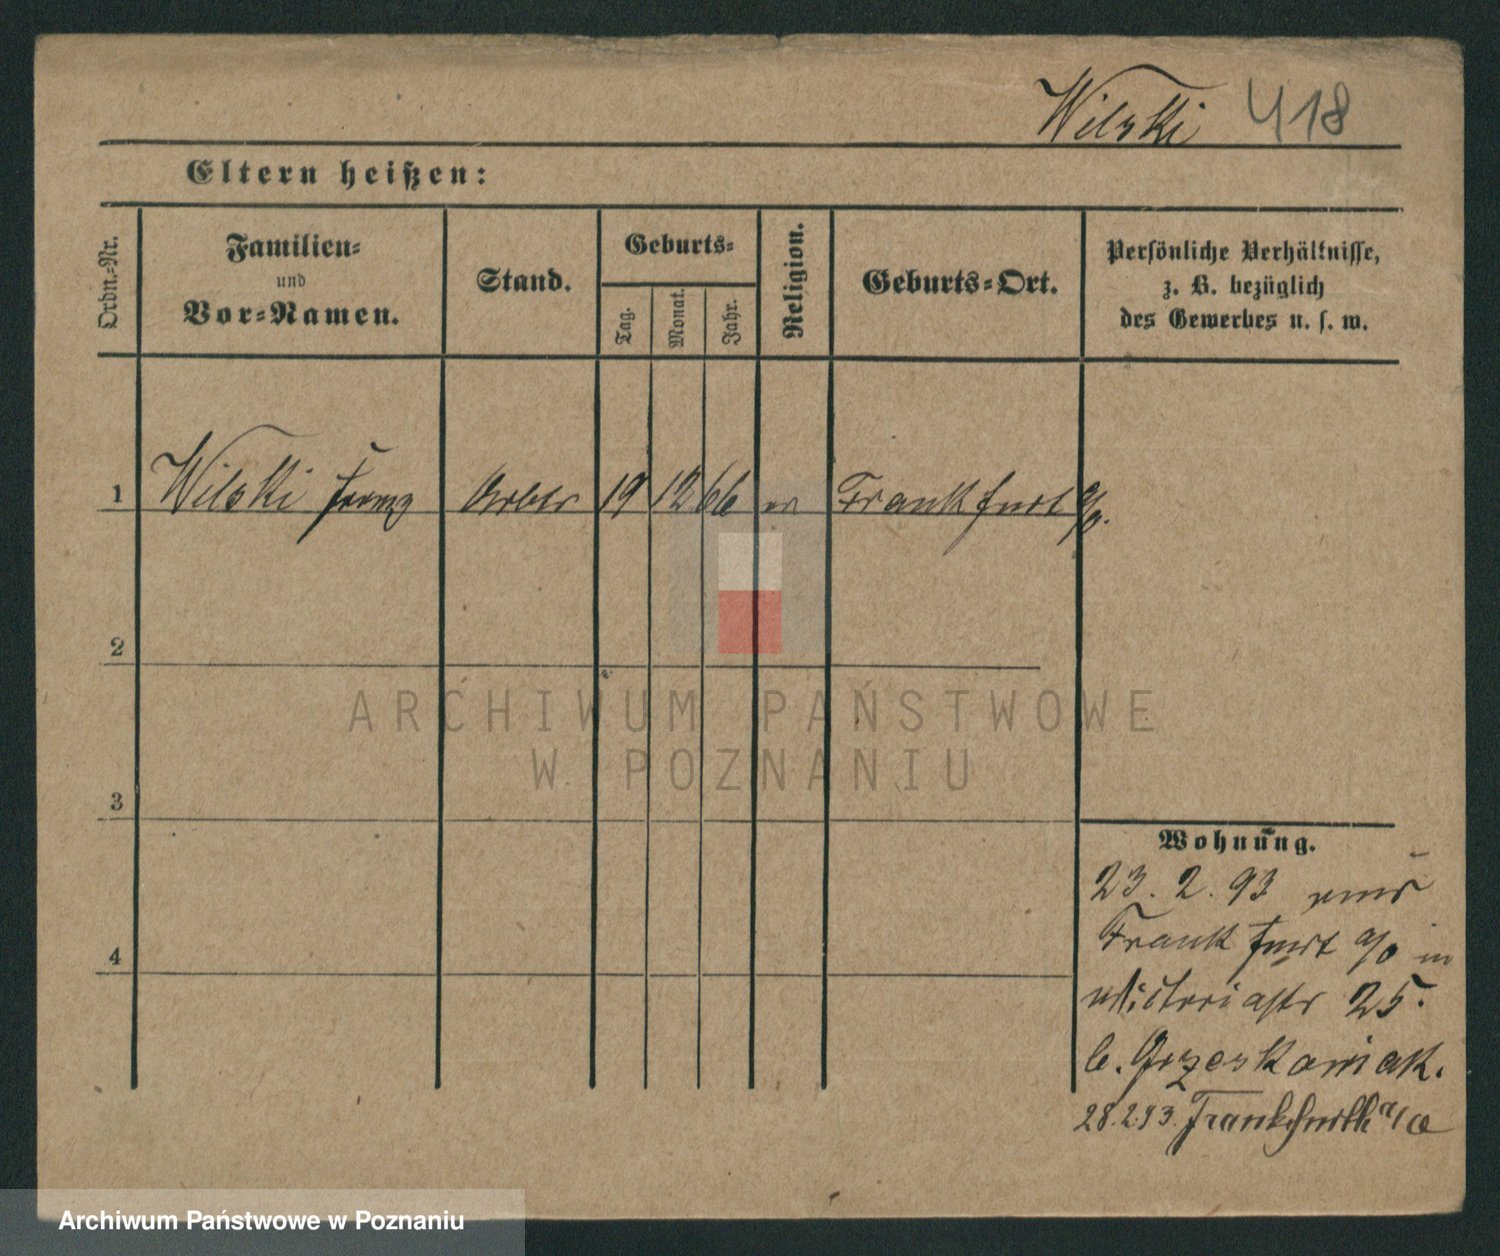 Wilski 418
Eltern heißen:
Ordn.-Nr.
Familien-
und
Vor-Namen.
Stand.
Geburts-
Tag.
Monat.
Jahr.
Religion.
Geburts-Ort.
Persönliche Verhältnisse,
z. B. bezüglich
des Gewerbes u. s. w.
1 Wilski Franz Arbtr 19 12 66 ev Frankfurt a/o.
2
3
4
Wohnung.
23. 2. 93 von
Frankfurt a/o in
Victoriastr 25.
b. Grzeskowiak.
28.2.93. Frankfurth a/O
ARCHIWUM PAŃSTWOWE
W POZNANIU
Archiwum Państwowe w Poznaniu